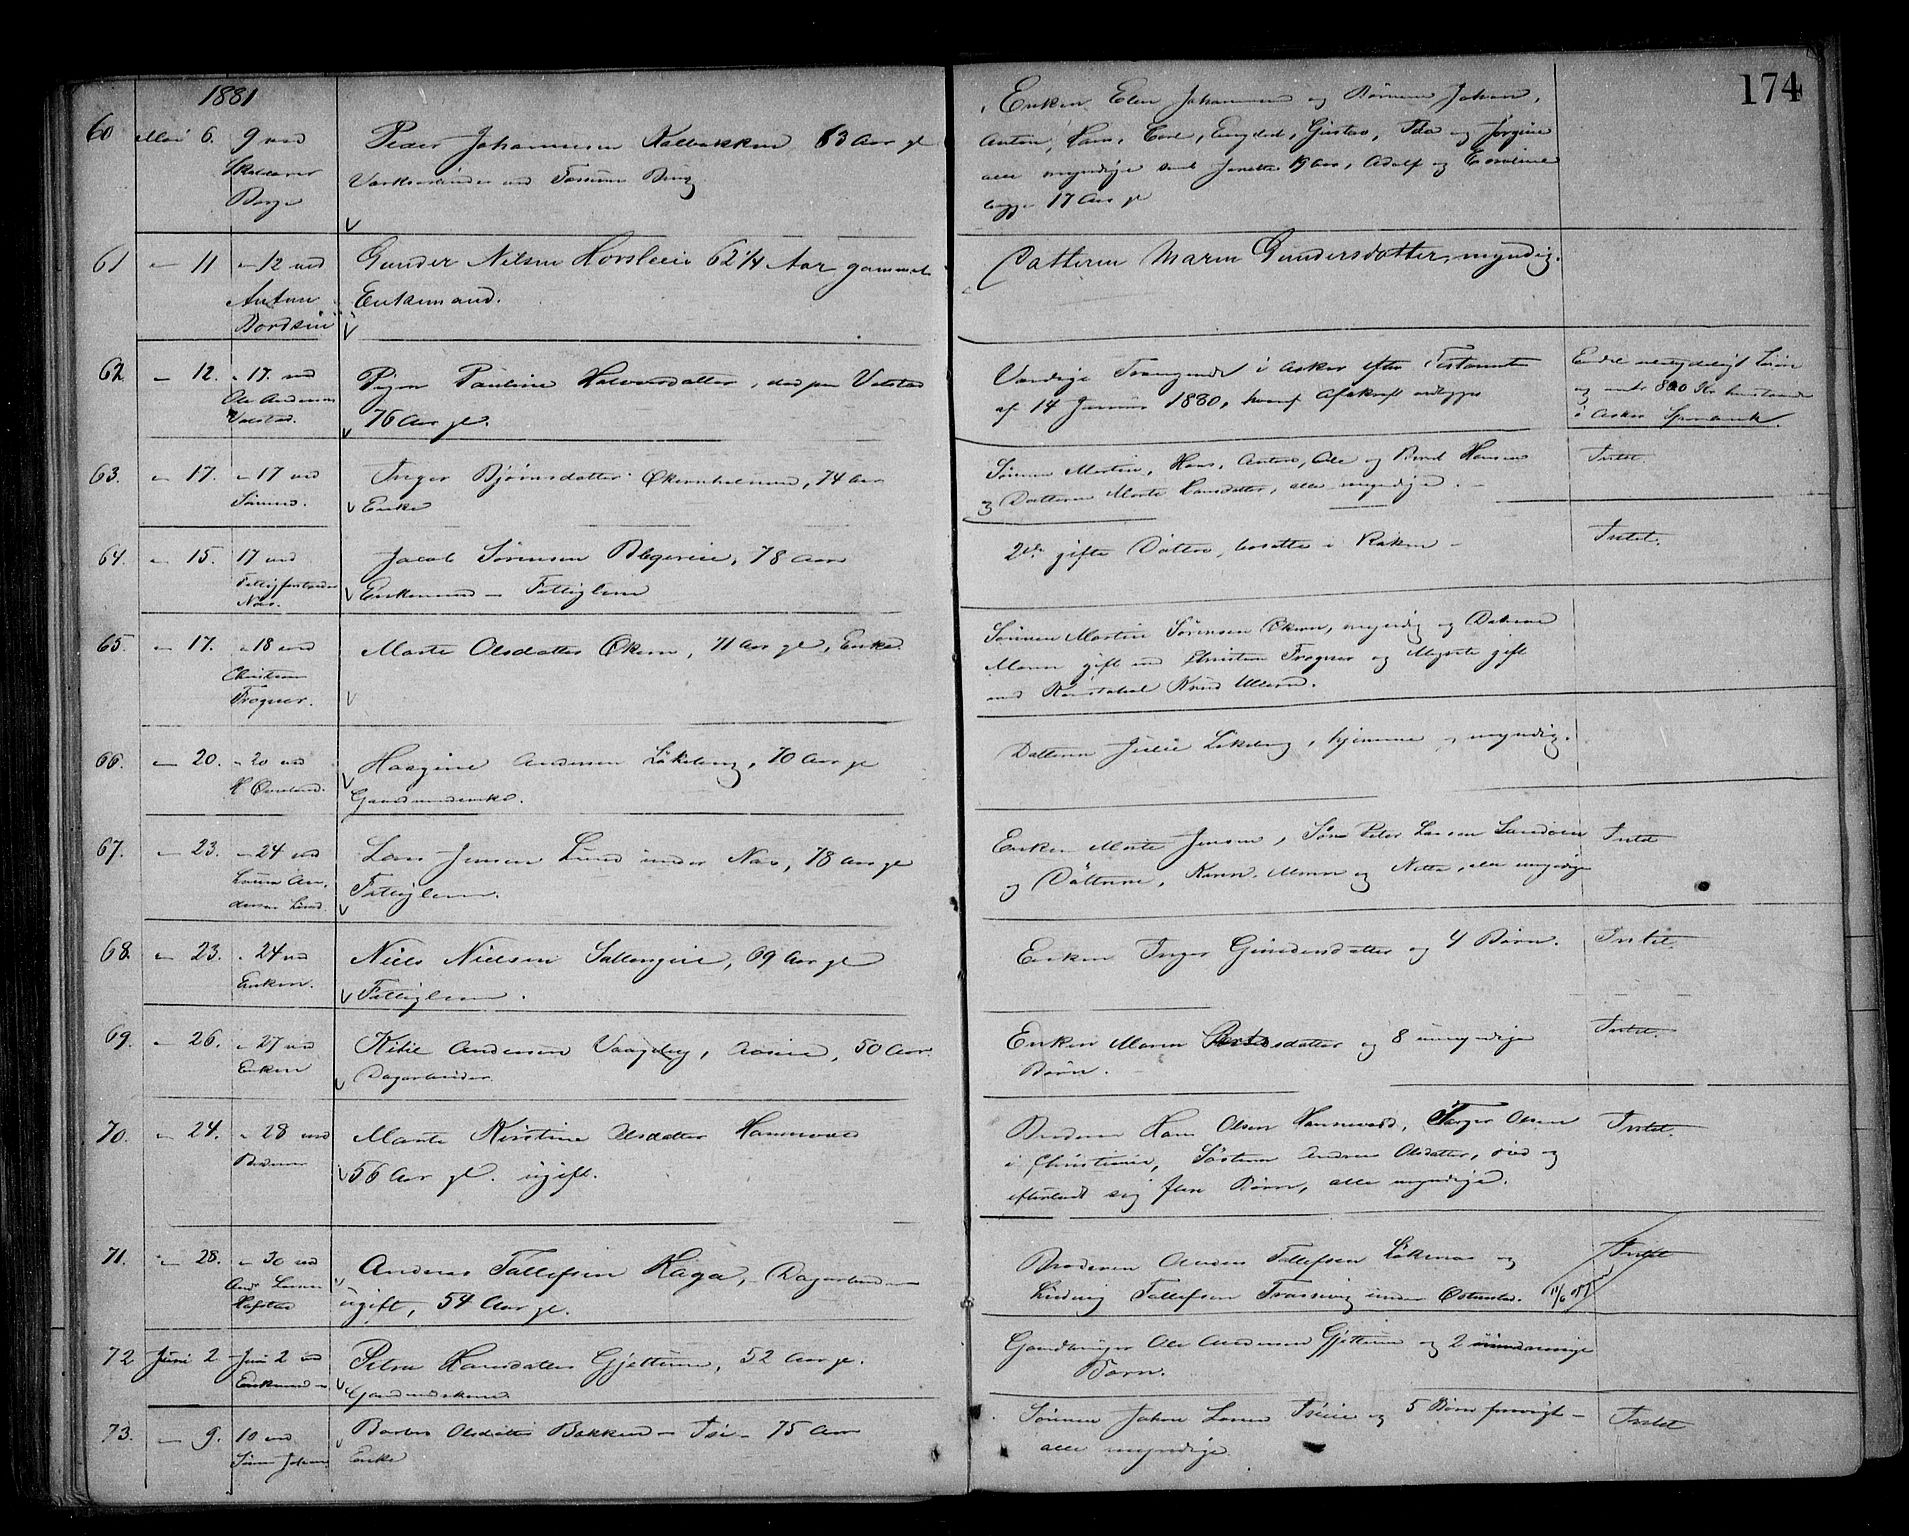 174
1881
60 Mai 6. 9 ved Skolelærer Berge
Peder Johannesen Kalbakken 63 Aar gl
Værksarbeider ved Fossum Brug
Enken Elen Johannesen og Børnene Johan,
Anton, Hans, Carl, Engebret, Gustav, Ida og Jørgine
alle myndige samt Janette 19 Aar, Adolf og Caroline
begge 17 Aar gl
61 " 11 " 12 ved Anton Bordsin
Gunder Nilsen Horsleeie 62 1/4 Aar gammel
Enkemand.
Datteren Maren Gundersdatter, myndig.
62 " 12. " 17. ved Ole Andersen Valstad.
Pigen Pauline Halvorsdatter, død paa Valstad
76 Aar gl.
i Asker efter Testamente
af 14 Januar 1880, hvoraf Afskrift vedlægges
Endel ubetydeligt Løsøre
og omtr 800 Kr henstaaende
i Asker Sparebank.
63. " 17. " 17 ved Sønnen.
Inger Bjørnsdatter Økernholmen, 74 Aar
Enke
Sønnen Martin, Hans, Anton, Ole og Bernt Hansen
og Datteren Marte Hansdatter, alle myndige.
Intet.
64. " 15. 17 ved Fattigforstander Næs.
Jacob Sørensen Blegereie, 78 Aar
Enkemand - Fattiglem
2de gifte Døttre, bosatte i Røken -
Intet.
65. " 17. " 18 ved Christian Frogner.
Marte Olsdatter Økern, 71 Aar gl, Enke
Sønnen Martin Sørensen Økern, myndig og Døttrene
Maren gift med Christian Frogner og Margrete gift
med Konstabel Knud Ullern.
66. " 20. " 20 ved H Overland.
Haagine Andersen Løkeberg, 70 Aar gl
Gaardmandsenke.
Datteren Julie Løkeberg, hjemme og myndig.
67. " 23. " 24 ved Laura Andersen Lund.
Lars Jensen Lund under Næs, 78 Aar gl
Fattiglem.
Enken Marte Jensen, Søn Peter Larsen Sandøen
og Døttrene, Karen, Maren og Netta, alle myndige
Intet
68. " 23. " 24 ved Enken.
Niels Nielsen Sollangeie, 69 Aar gl
Fattiglem.
Enken Inger Gundersdatter og 4 Børn.
Intet.
69. " 26. " 27 ved Enken
Kittil Andersen Vaagebg, Aaseie, 50 Aar.
Dagarbeider.
Enken Maren datter og 8 umyndige
Børn.
Intet.
70. " 24. " 28 ved Broderen
Marte Kirstine Olsdatter Hannevold
56 Aar gl. ugift.
Broderen Hans Olsen Hannevold, Torger Olsen
i Christiania, Søsteren Andrea Olsdatter, død og
efterladt sig flere Børn, alle myndige.
Intet.
71. " 28. " 30 ved And Larsen Hofstad
Anders Tollefsen Haga, Dagarbeider
ugift, 54 Aar gl.
Broderen Anders Tollefsen Løkenæs og
Ludvig Tollefsen under Østenstad.
Intet
72 Juni 2 Juni 2 ved Enkemanden
Petra Hansdatter Gjettum, 52 Aar gl.
Gaardmandskone
Gaardbruger Ole Andersen Gjettum og 2 mindreaarige
Børn.
73. " 9. 10 ved Sønnen Johan
Barbro Olsdatter Bakken - 75 Aar
Enke
Sønnen Johan Larsen og 5 Børn forøvrigt -
alle myndige.
Intet